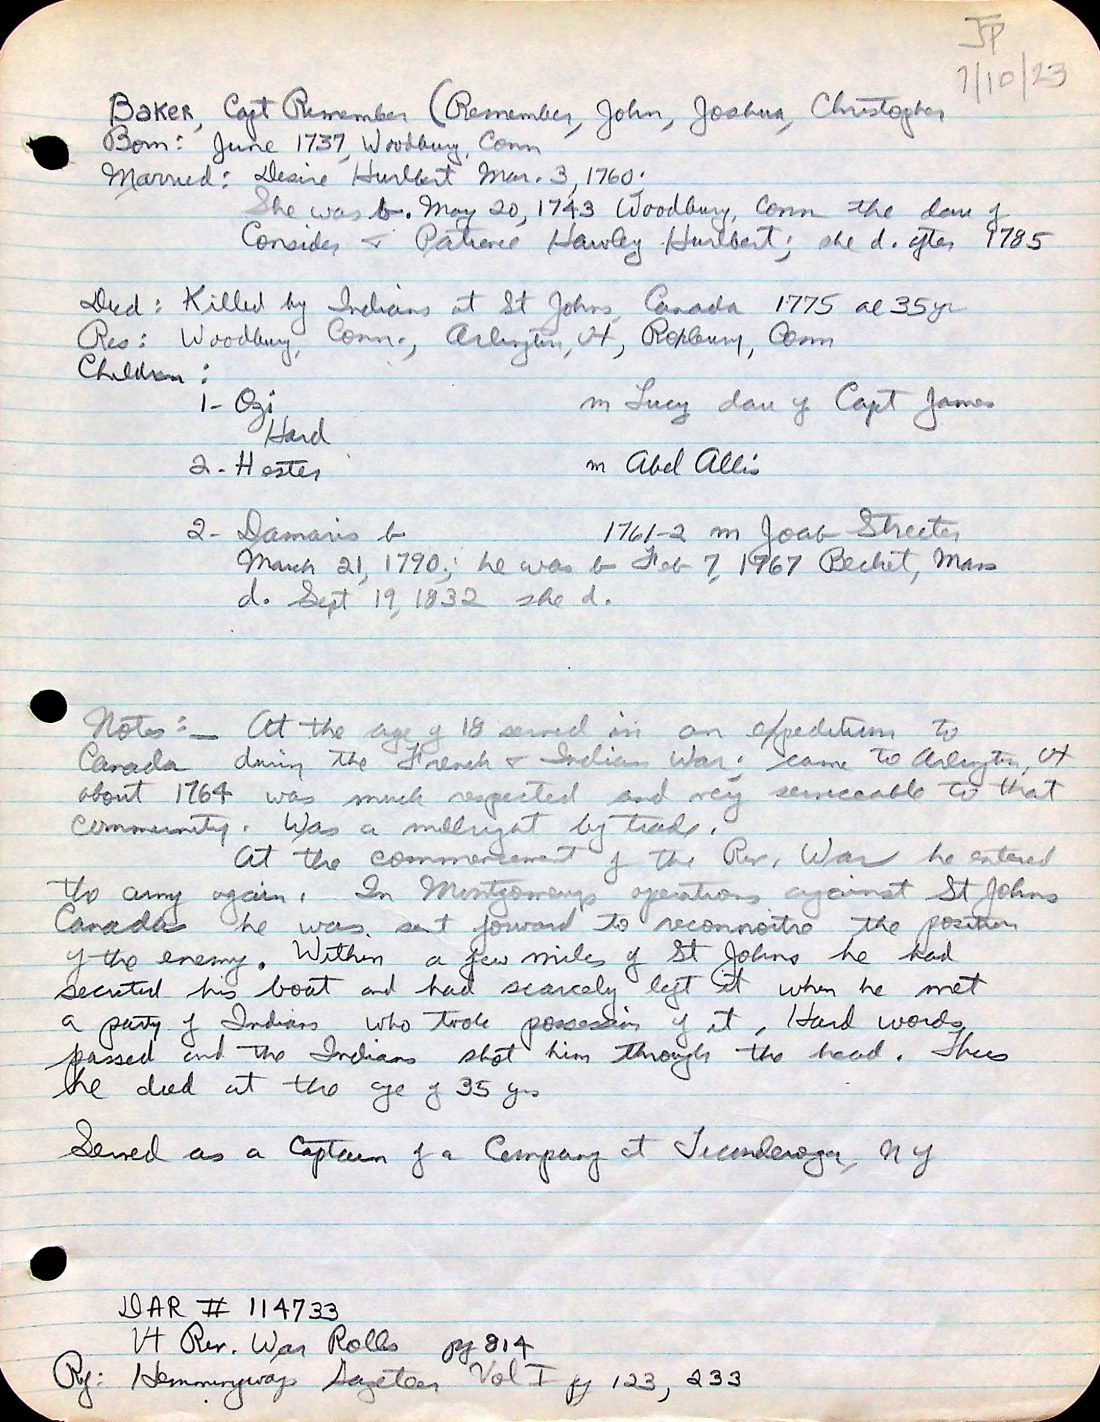 JP
7/10/23
Baker, Capt Remember (Remember, John, Joshua, Christopher
Born: June 1737, Woodbury, Conn
Married: Desire Hurlbert Mar. 3, 1760.
She was b. May 20, 1743 Woodbury, Conn the dau of
Consider & Patience Hawley Hurlbert; she d. after 1785
Died: Killed by Indians at St Johns, Canada 1775 ae 35 yr
Res: Woodbury, Conn., Arlington, Vt, Roxbury, Conn
Children:
1- Ozi m Lucy dau of Capt James
Hard
2- Hester m Abel Allis
2- Damaris b 1761-2 m Joab Streeter
March 21, 1790; he was b Feb 7, 1967 Becket, Mass
d. Sept 19, 1832 she d.
Notes:— At the age of 18 served in an expedition to
Canada during the French & Indian War; came to Arlington, Vt
about 1764 was much respected and very serviceable to that
community. Was a millright by trade.
At the commencement of the Rev. War he entered
the army again. In Montgomerys operations against St Johns
Canada he was sent forward to reconnoitre the position
of the enemy. Within a few miles of St Johns he had
secreted his boat and had scarcely left it when he met
a party of Indians who took possession of it, Hard words
passed and the Indians shot him through the head. Thus
he died at the age of 35 yrs
Served as a Captain of a Company at Ticonderoga, NY
DAR # 114733
Vt Rev. War Rolls pg 814
Rf: Hemmingways Gazeteer Vol I pg 123, 233